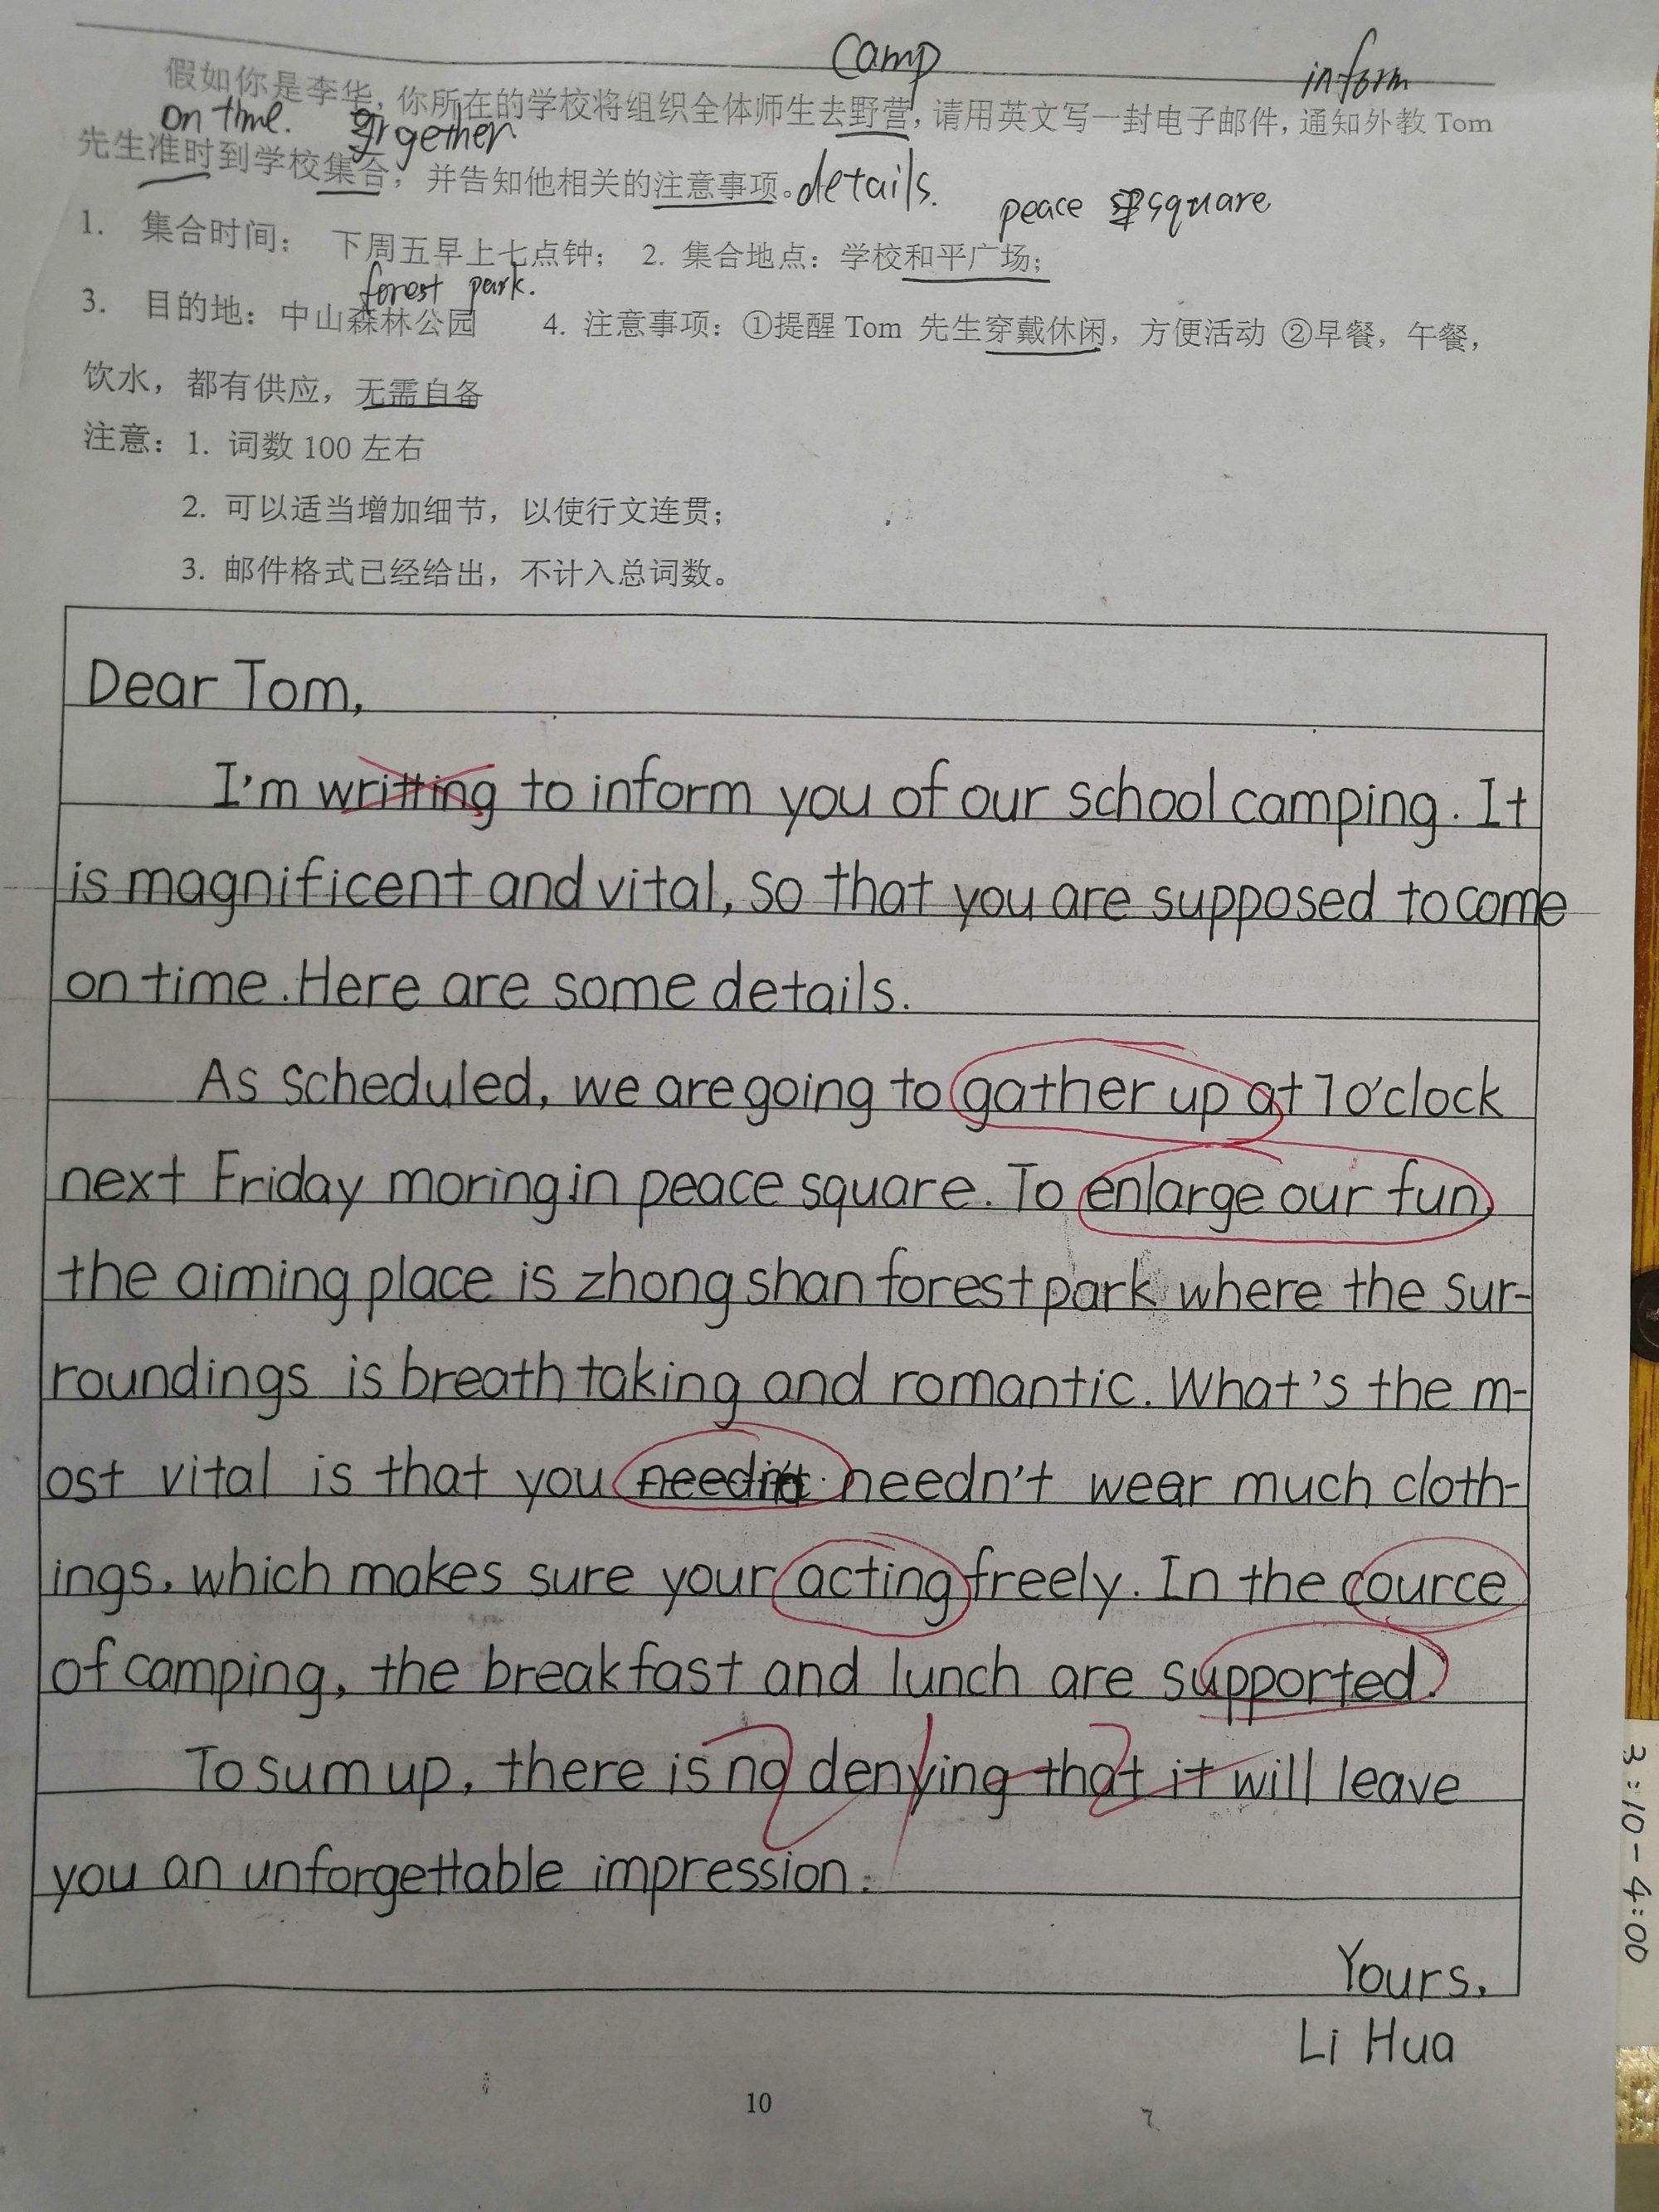 camp
inform
假如你是李华，你所在的学校将组织全体师生去野营，请用英文写一封电子邮件，通知外教 Tom
on time.
先生准时到学校集合，并告知他相关的注意事项。details.
peace square
1. 集合时间： 下周五早上七点钟； 2. 集合地点：学校和平广场；
forest park.
3. 目的地：中山森林公园 4. 注意事项：①提醒 Tom 先生穿戴休闲，方便活动 ②早餐，午餐，
饮水，都有供应，无需自备
注意：1. 词数 100 左右
2. 可以适当增加细节，以使行文连贯；
3. 邮件格式已经给出，不计入总词数。
Dear Tom,
I'm writting to inform you of our school camping. It
is magnificent and vital, so that you are supposed to come
on time. Here are some details.
As scheduled, we are going to gather up at 7 o'clock
next Friday moring in peace square. To enlarge our fun,
the aiming place is zhong shan forest park where the sur-
roundings is breath taking and romantic. What's the m-
ost vital is that you needn't wear much cloth-
ings, which makes sure your acting freely. In the cource
of camping, the breakfast and lunch are supported.
To sum up, there is no denying that it will leave
you an unforgettable impression.
Yours,
Li Hua
10
3:10-4:00